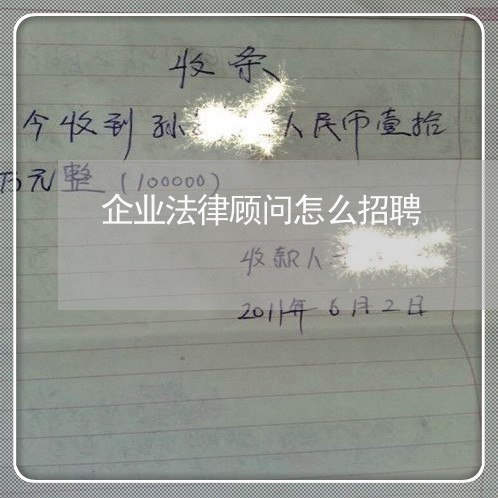 收条
今收到孙 人民币壹拾
万元整(100000)
企业法律顾问怎么招聘
收款人
2011年6月2日